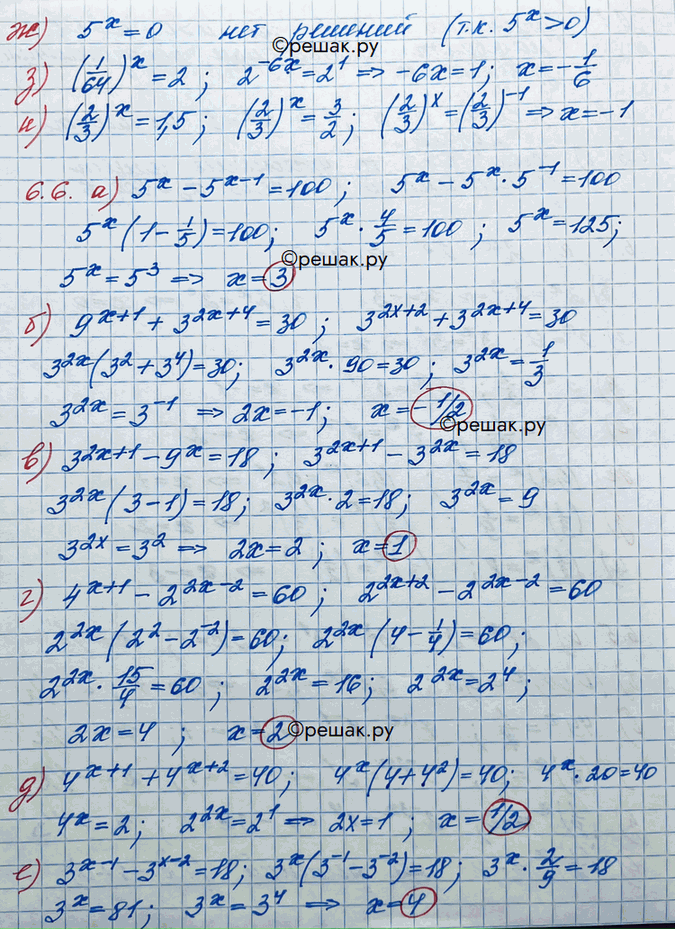 ж) 5^x = 0 нет решений (т.к. 5^x > 0)
©решак.ру
з) (1/64)^x = 2 ; 2^(-6x) = 2^1 => -6x = 1; x = -1/6
и) (2/3)^x = 1,5 ; (2/3)^x = 3/2 ; (2/3)^x = (2/3)^(-1) => x = -1
6.6. а) 5^x - 5^(x-1) = 100 ; 5^x - 5^x · 5^(-1) = 100
5^x (1 - 1/5) = 100; 5^x · 4/5 = 100 ; 5^x = 125;
©решак.ру
5^x = 5^3 => x = 3
б) 9^(x+1) + 3^(2x+4) = 30 ; 3^(2x+2) + 3^(2x+4) = 30
3^(2x) (3^2 + 3^4) = 30; 3^(2x) · 90 = 30 ; 3^(2x) = 1/3
3^(2x) = 3^(-1) => 2x = -1; x = -1/2
©решак.ру
в) 3^(2x+1) - 9^x = 18 ; 3^(2x+1) - 3^(2x) = 18
3^(2x) (3 - 1) = 18; 3^(2x) · 2 = 18; 3^(2x) = 9
3^(2x) = 3^2 => 2x = 2 ; x = 1
г) 4^(x+1) - 2^(2x-2) = 60 ; 2^(2x+2) - 2^(2x-2) = 60
2^(2x) (2^2 - 2^(-2)) = 60; 2^(2x) (4 - 1/4) = 60 ;
2^(2x) · 15/4 = 60 ; 2^(2x) = 16 ; 2^(2x) = 2^4 ;
2x = 4 ; x = 2
©решак.ру
д) 4^(x+1) + 4^(x+2) = 40; 4^x (4 + 4^2) = 40; 4^x · 20 = 40
4^x = 2 ; 2^(2x) = 2^1 => 2x = 1 ; x = 1/2
е) 3^(x-1) - 3^(x-2) = 18; 3^x (3^(-1) - 3^(-2)) = 18; 3^x · 2/9 = 18
3^x = 81; 3^x = 3^4 => x = 4